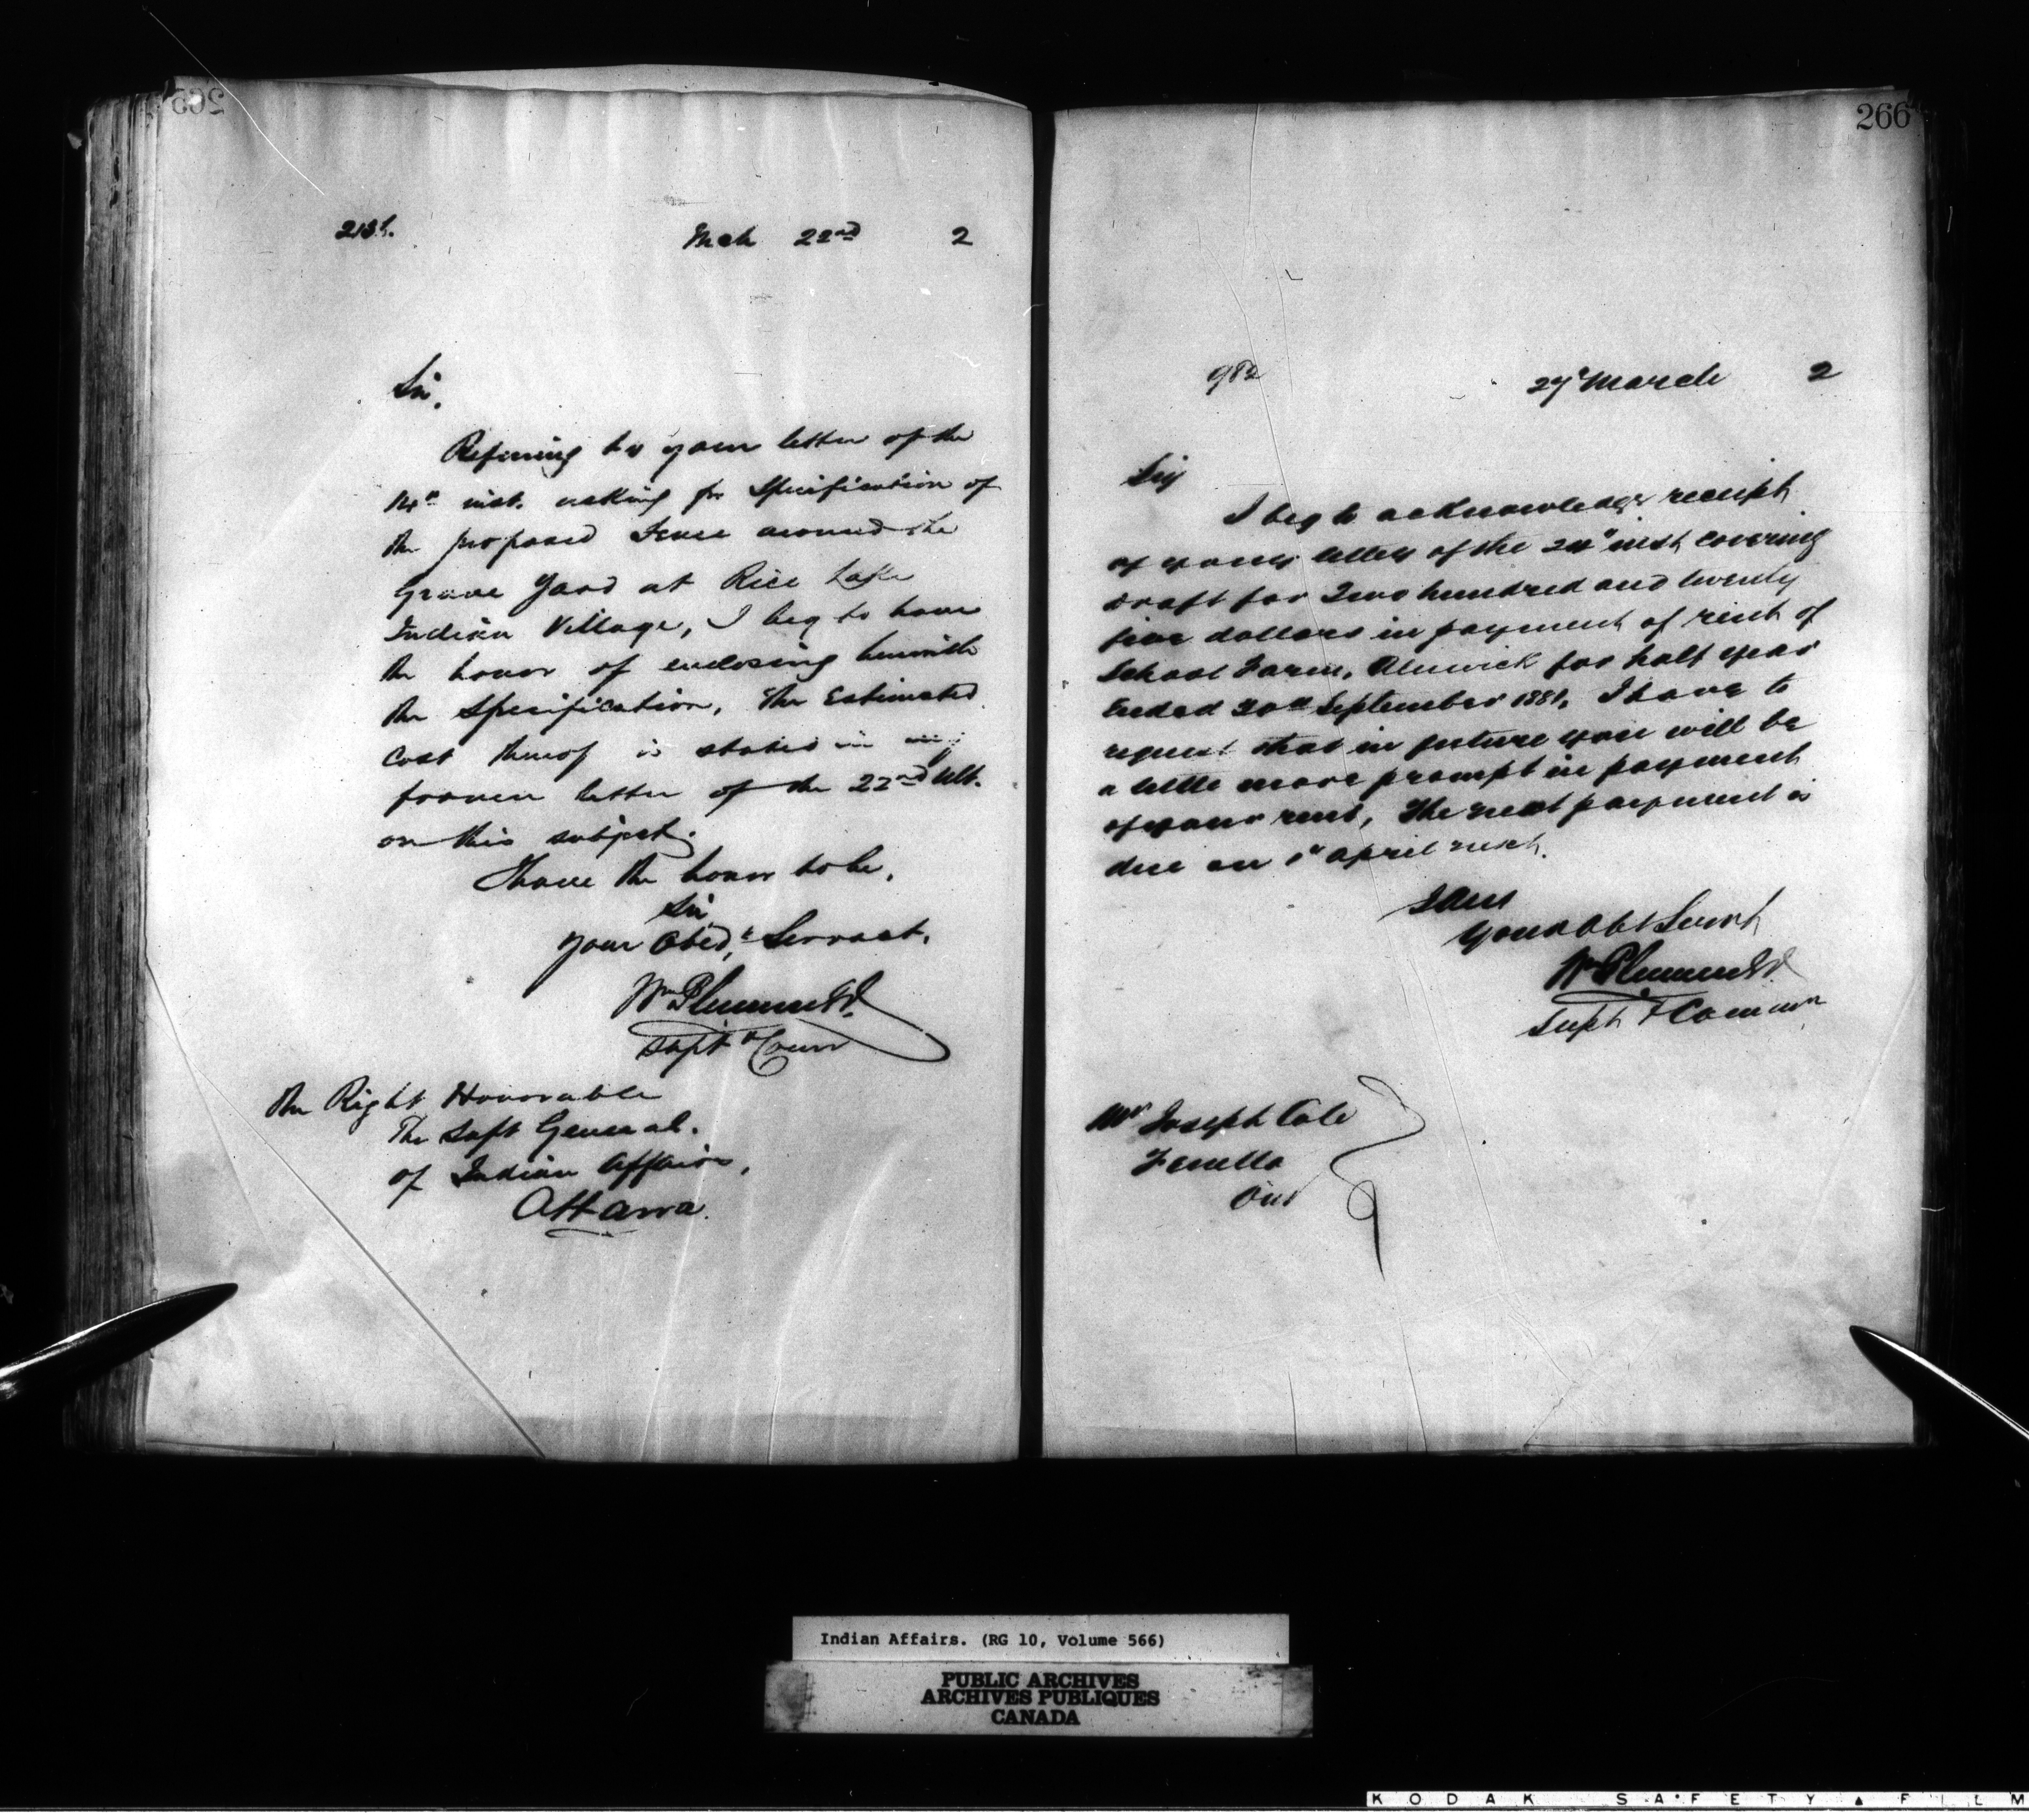 265
Mch 22nd 2
Sir,
Referring to your letter of the
14th inst. asking for Specification of
the proposed Fence around the
Grave Yard at Rice Lake
Indian Village, I beg to have
the honor of enclosing herewith
the Specification, the Estimated
Cost thereof is stated in my
former letter of the 22nd Ult.
on this subject.
I have the honor to be,
Sir,
Your Obedt. Servant,
Wm Plummer
Supt & Comr
The Right Honorable
The Supt General.
of Indian Affairs,
Ottawa.
266
982
27th March 2
Sir
I beg to acknowledge receipt
of your letter of the 24th inst covering
draft for Two hundred and twenty
five dollars in payment of rent of
School Farm, Alnwick for half year
Ended 30th September 1881, I have to
request that in future you will be
a little more prompt in payment
of your rent, The next payment is
due on 1st April next.
I am
Your Obt Servt
Wm Plummer
Supt & Commr
Mr Joseph Cole
Fenella
Ont
Indian Affairs. (RG 10, Volume 566)
PUBLIC ARCHIVES
ARCHIVES PUBLIQUES
CANADA
KODAK SAFETY FILM